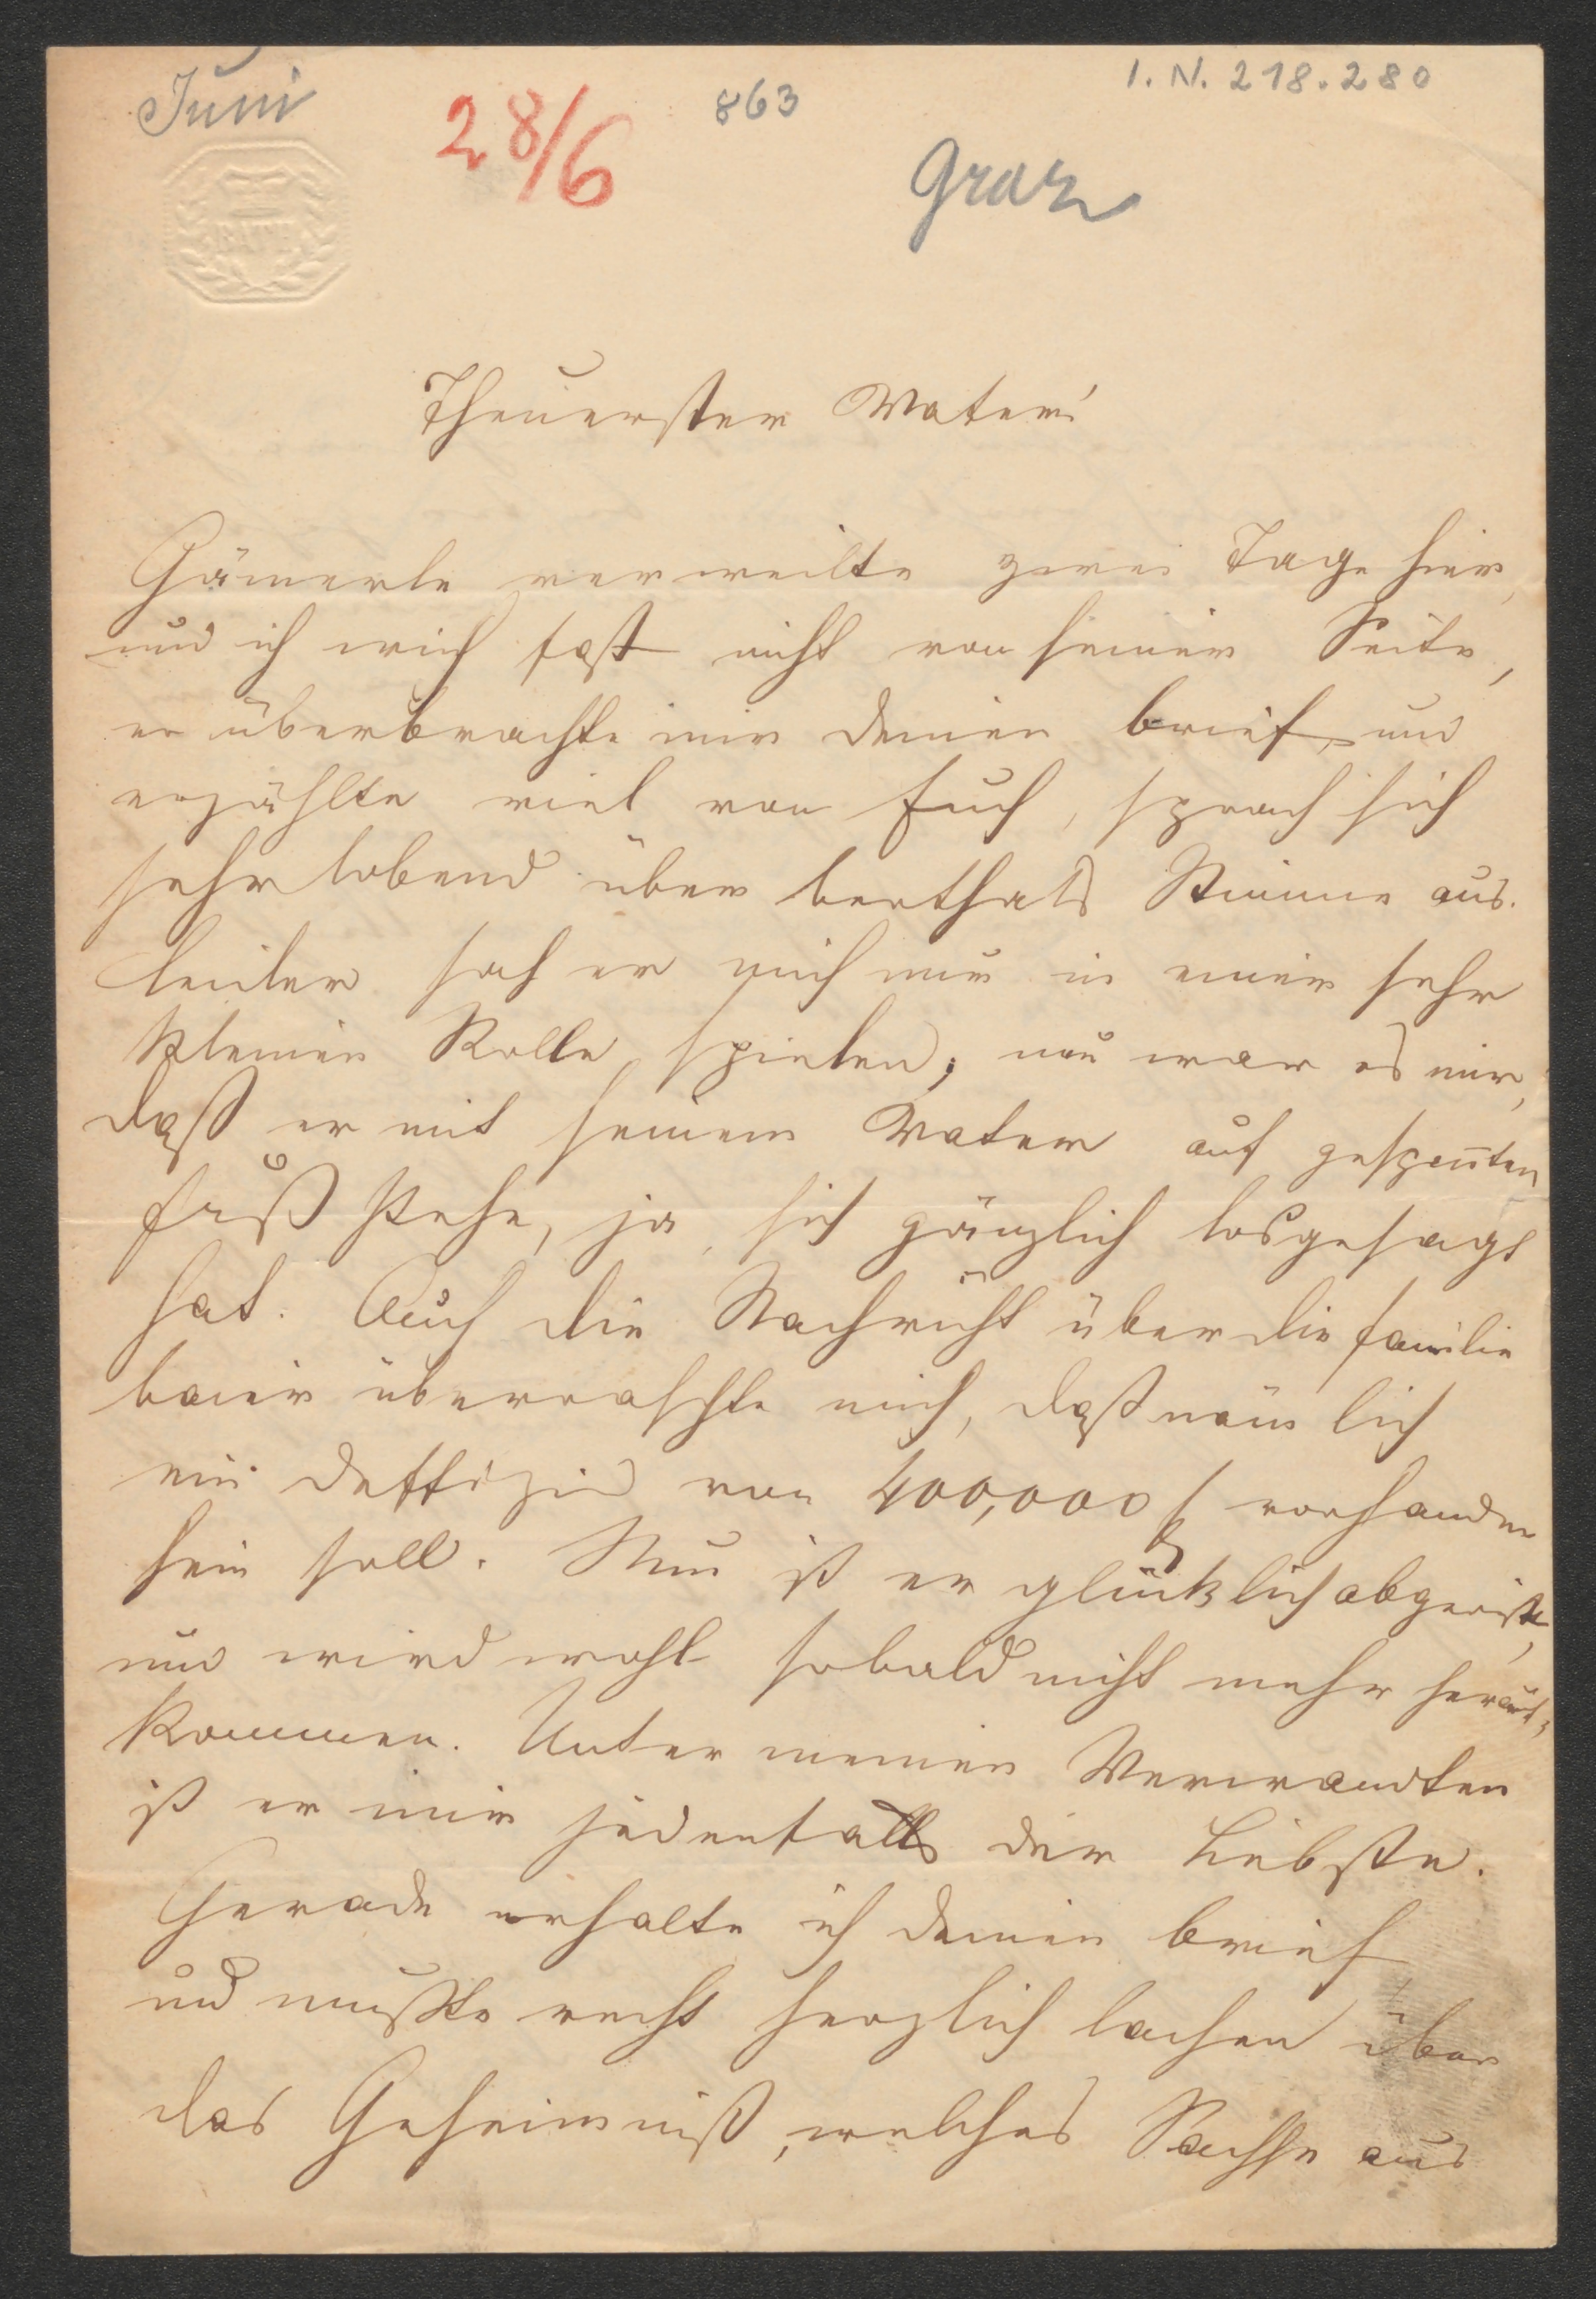 Juni
28/6
863
I. N. 218.280
Graz
BATH
Theuerster Vater!
Gämerle verweilte zwei Tage hier,
und ich wich fast nicht von seiner Seite,
er überbrachte mir deinen Brief, und
erzählte viel von Euch, sprach sich
sehr lobend über Bertha's Stimme aus.
Leider sah er mich nur in einer sehr
kleinen Rolle spielen; neu war es mir,
daß er mit seinem Vater auf gespannten
Fuß stehe, ja, sich gänzlich losgesagt
hat. Auch die Nachricht über die Familie
Baier überraschte mich, daß nämlich
ein Deffizid von 400,000 f vorhanden
sein soll. Nun ist er glücklich abgereist,
und wird wohl sobald nicht mehr herauf-
kommen. Unter meinen Verwandten
ist er mir jedenfalls der Liebste.
Gerade erhalte ich deinen Brief
und mußte recht herzlich lachen über
das Geheimniß, welches Sachse aus